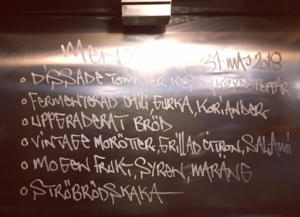 Meny 31 maj 2018
• Dissade tomater,
• Fermenterad chili gurka, koriander
• Uppgraderat bröd
• Vintage morötter, grillad citron, salami
• Mogen frukt, syren, maräng
• Ströbrödskaka